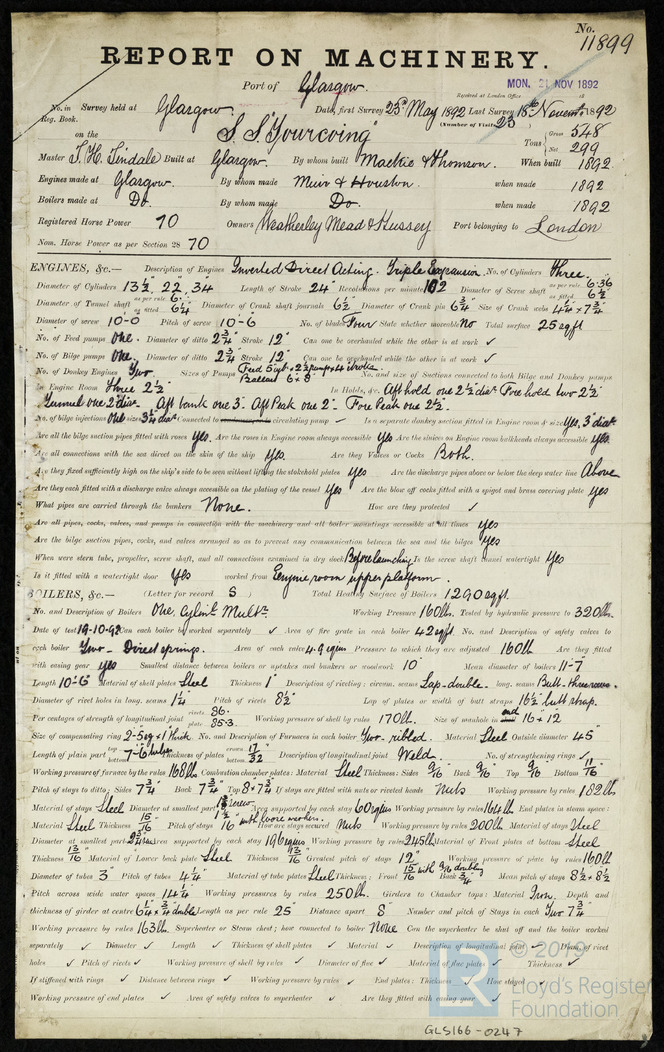 No. 11899
REPORT ON MACHINERY.
Port of Glasgow.
Received at London Office MON. 21 NOV 1892 18
No. in Reg. Book. Survey held at Glasgow. Date, first Survey 25th May 1892 Last Survey 18th Novem 1892
(Number of Visits 23
on the S.S. "Tourcoing"
Tons Gross 548 Net 299
Master T. H. Tindale Built at Glasgow. By whom built Mackie & Thomson. When built 1892.
Engines made at Glasgow. By whom made Muir & Houston. when made 1892
Boilers made at Do. By whom made Do. when made 1892
Registered Horse Power 70 Owners Weatherley Mead & Hussey Port belonging to London
Nom. Horse Power as per Section 28 70
ENGINES, &c.— Description of Engines Inverted Direct Acting. Triple Expansion. No. of Cylinders Three.
Diameter of Cylinders 13½, 22, 34 Length of Stroke 24" Revolutions per minute 102 Diameter of Screw shaft as per rule 6.36 as fitted 6½
Diameter of Tunnel shaft as per rule 6. as fitted 6¼ Diameter of Crank shaft journals 6½ Diameter of Crank pin 6¾ Size of Crank webs 4¼ x 7¾
Diameter of screw 10-0 Pitch of screw 10-6 No. of blades Four State whether moveable No Total surface 25 sqft
No. of Feed pumps One. Diameter of ditto 2¾ Stroke 12" Can one be overhauled while the other is at work ✓
No. of Bilge pumps One. Diameter of ditto 2¾ Stroke 12" Can one be overhauled while the other is at work ✓
No. of Donkey Engines Two. Sizes of Pumps Ballast 6 x 8 No. and size of Suctions connected to both Bilge and Donkey pumps
In Engine Room Three 2½" In Holds, &c. Aft hold one 2½ diar. Fore hold two 2½"
Tunnel one 2" diar. Aft tank one 3". Aft Peak one 2". Fore Peak one 2½".
No. of bilge injections One sizes 3¾ diar. Connected to circulating pump ✓ Is a separate donkey suction fitted in Engine room & size Yes, 3" diar.
Are all the bilge suction pipes fitted with roses Yes. Are the roses in Engine room always accessible Yes Are the sluices on Engine room bulkheads always accessible Yes.
Are all connections with the sea direct on the skin of the ship Yes. Are they Valves or Cocks Both.
Are they fixed sufficiently high on the ship's side to be seen without lifting the stokehold plates Yes Are the discharge pipes above or below the deep water line Above
Are they each fitted with a discharge valve always accessible on the plating of the vessel Yes Are the blow off cocks fitted with a spigot and brass covering plate Yes
What pipes are carried through the bunkers None. How are they protected ✓
Are all pipes, cocks, valves, and pumps in connection with the machinery and all boiler mountings accessible at all times Yes
Are the bilge suction pipes, cocks, and valves arranged so as to prevent any communication between the sea and the bilges Yes
When were stern tube, propeller, screw shaft, and all connections examined in dry dock Before launching Is the screw shaft tunnel watertight Yes
Is it fitted with a watertight door Yes worked from Engine room upper platform.
BOILERS, &c.— (Letter for record S) Total Heating Surface of Boilers 1290 sq ft.
No. and Description of Boilers One Cylinl Mult. Working Pressure 160 lb. Tested by hydraulic pressure to 320 lb.
Date of test 19-10-92 Can each boiler be worked separately ✓ Area of fire grate in each boiler 42 sqft. No. and Description of safety valves to
each boiler Two - Direct springs. Area of each valve 4.9 sq in Pressure to which they are adjusted 160 lb Are they fitted
with easing gear Yes Smallest distance between boilers or uptakes and bunkers or woodwork 10" Mean diameter of boilers 11-7
Length 10-6" Material of shell plates Steel Thickness 1" Description of riveting: circum. seams Lap-double. long. seams Butt-three rows.
Diameter of rivet holes in long. seams 1¼ Pitch of rivets 8½" Lap of plates or width of butt straps 16½ butt strap.
Per centages of strength of longitudinal joint rivets 86. plate 85.3. Working pressure of shell by rules 170 lb. Size of manhole in end 16 x 12
Size of compensating ring 2-5 sq x 1" thick. No. and Description of Furnaces in each boiler Two. ribbed. Material Steel Outside diameter 45"
Length of plain part top bottom 7-6 Thickness of plates crown bottom 17/32 Description of longitudinal joint Weld. No. of strengthening rings ✓
Working pressure of furnace by the rules 168 lb Combustion chamber plates: Material Steel Thickness: Sides 9/16 Back 9/16 Top 9/16 Bottom 11/16
Pitch of stays to ditto: Sides 7¾ Back 7¾ Top 8 x 7¾ If stays are fitted with nuts or riveted heads Nuts Working pressure by rules 182 lb
Material of stays Steel Diameter at smallest part Area supported by each stay 60 sq ins Working pressure by rules 164 lb End plates in steam space:
Material Steel Thickness 15/16 Pitch of stays 16 How are stays secured Nuts Working pressure by rules 200 lb Material of stays Steel
Diameter at smallest part 2¾ Area supported by each stay 196 sq ins Working pressure by rules 245 lb Material of Front plates at bottom Steel
Thickness 13/16 Material of Lower back plate Steel Thickness 13/16 Greatest pitch of stays 12" Working pressure of plate by rules 160 lb
Diameter of tubes 3" Pitch of tubes 4¼" Material of tube plates Steel Thickness: Front 15/16 with 9/16 doubling Back ¾ Mean pitch of stays 8½ x 8½
Pitch across wide water spaces 14¼" Working pressures by rules 250 lb. Girders to Chamber tops: Material Iron. Depth and
thickness of girder at centre 6¼ x ¾ double Length as per rule 25" Distance apart 8" Number and pitch of Stays in each Two 7¾"
Working pressure by rules 163 lb Superheater or Steam chest; how connected to boiler None Can the superheater be shut off and the boiler worked
separately ✓ Diameter ✓ Length ✓ Thickness of shell plates ✓ Material ✓ Description of longitudinal joint ✓ Diam. of rivet
holes ✓ Pitch of rivets ✓ Working pressure of shell by rules ✓ Diameter of flue ✓ Material of flue plates ✓ Thickness ✓
If stiffened with rings ✓ Distance between rings ✓ Working pressure by rules ✓ End plates: Thickness ✓ How stayed ✓
Working pressure of end plates ✓ Area of safety valves to superheater ✓ Are they fitted with easing gear ✓
© 2019
LR
Lloyd's Register
Foundation
GLS166-0247